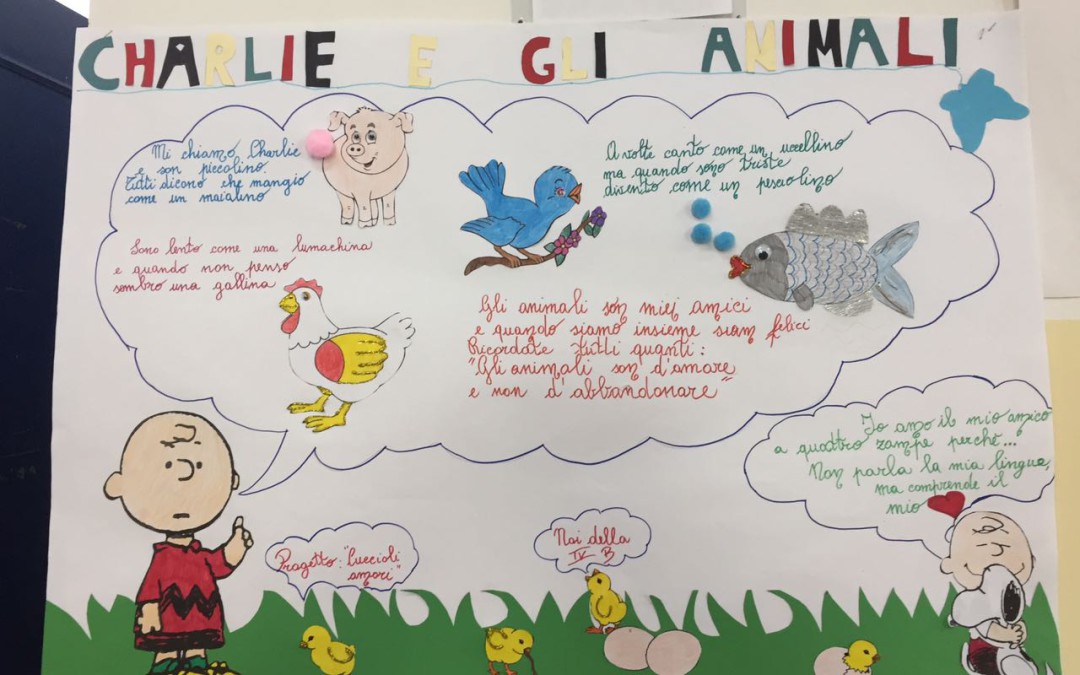 CHARLIE E GLI ANIMALI
Mi chiamo Charlie
e son piccolino.
Tutti dicono che mangio
come un maialino
Sono lento come una lumachina
e quando non penso
sembro una gallina
A volte canto come un uccellino
ma quando sono triste
divento come un pesciolino
Gli animali son miei amici
e quando siamo insieme siam felici
Ricordate tutti quanti:
"Gli animali son d'amare
e non d'abbandonare"
Io amo il mio amico
a quattro zampe perchè...
Non parla la mia lingua,
ma comprende il
mio
Progetto: "Cuccioli
amori"
Noi della
IV B